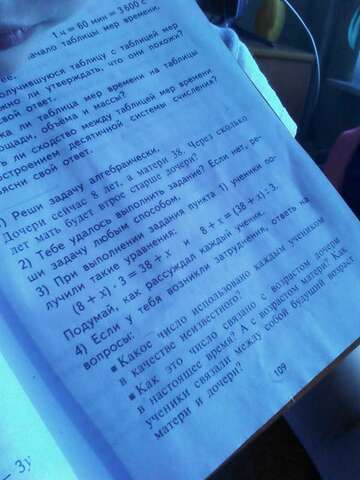 1 ч = 60 мин = 3600 с
начало таблицы мер времени,
лучившуюся таблицу с таблицей мер
жно ли утверждать, что они похожи?
свой ответ.
ка ли таблица мер времени на таблицы
ощади, объёма и массы?
ь ли сходство между таблицей мер времени
остроением десятичной системы счисления?
ясни свой ответ.
1) Реши задачу алгебраически.
Дочери сейчас 8 лет, а матери 38. Через сколько
лет мать будет втрое старше дочери?
2) Тебе удалось выполнить задание? Если нет, ре-
ши задачу любым способом.
3) При выполнении задания пункта 1) ученики по-
лучили такие уравнения:
(8 + x) · 3 = 38 + x и 8 + x = (38 + x) : 3.
Подумай, как рассуждал каждый ученик.
4) Если у тебя возникли затруднения, ответь на
вопросы:
■ Какое число использовано каждым учеником
в качестве неизвестного?
■ Как это число связано с возрастом дочери
в настоящее время? А с возрастом матери? Как
ученики связали между собой будущий возраст
матери и дочери?
109
– 3у